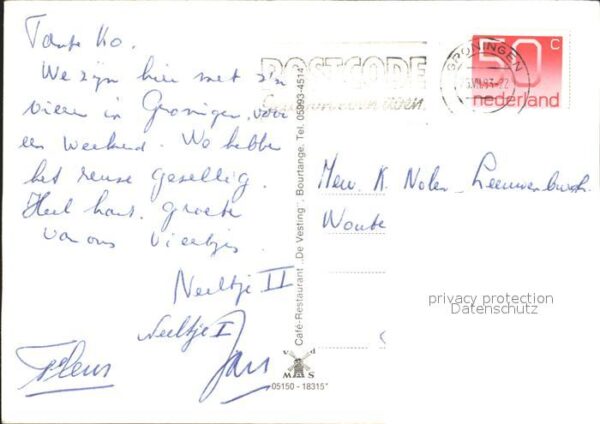 Tante Ko.
We zijn hier met z'n
vieren in Groningen, voor
een weekend. We hebben
het reuse gesellig.
Heel hart. groete
van ons viertjes.
Neeltje II
Neeltje I
Jan
POSTCODE
GRONINGEN
50 c
nederland
Mevr. K. Nolen-Leeuwenburgh
Woute
privacy protection
Datenschutz
Café-Restaurant „De Vesting", Bourtange. Tel. 05993-4514
M S
05150 - 18315*